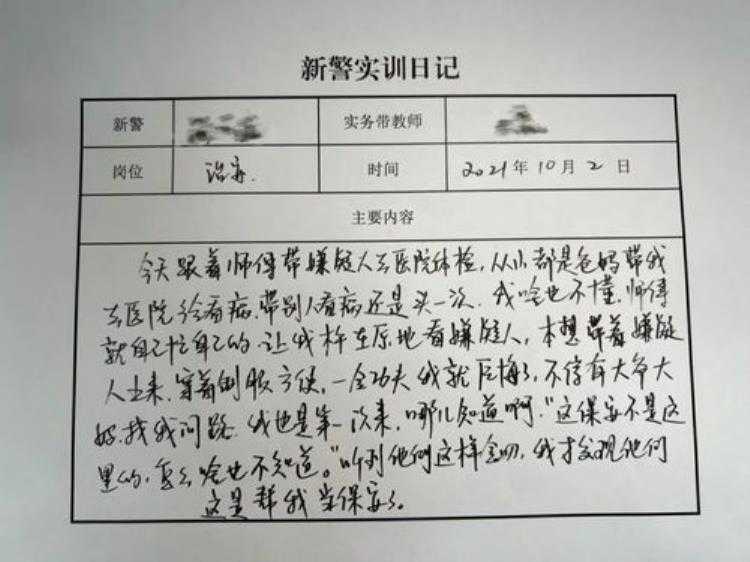 新警实训日记
新警 实务带教师
岗位 治安. 时间 2021年10月2日
主要内容
今天跟着师傅带嫌疑人去医院体检,从小都是爸妈带我
去医院给看病,带别人看病还是头一次.我啥也不懂,师傅
就自己忙自己的,让我杵在原地看嫌疑人,本想带着嫌疑
人出来,穿着制服方便,一会功夫我就后悔了,不停有大爷大
妈找我问路.我也是第一次来,哪儿知道啊."这保安不是这
里的,怎么啥也不知道。"听到他们这样念叨,我才发现他们
这是帮我当保安了。